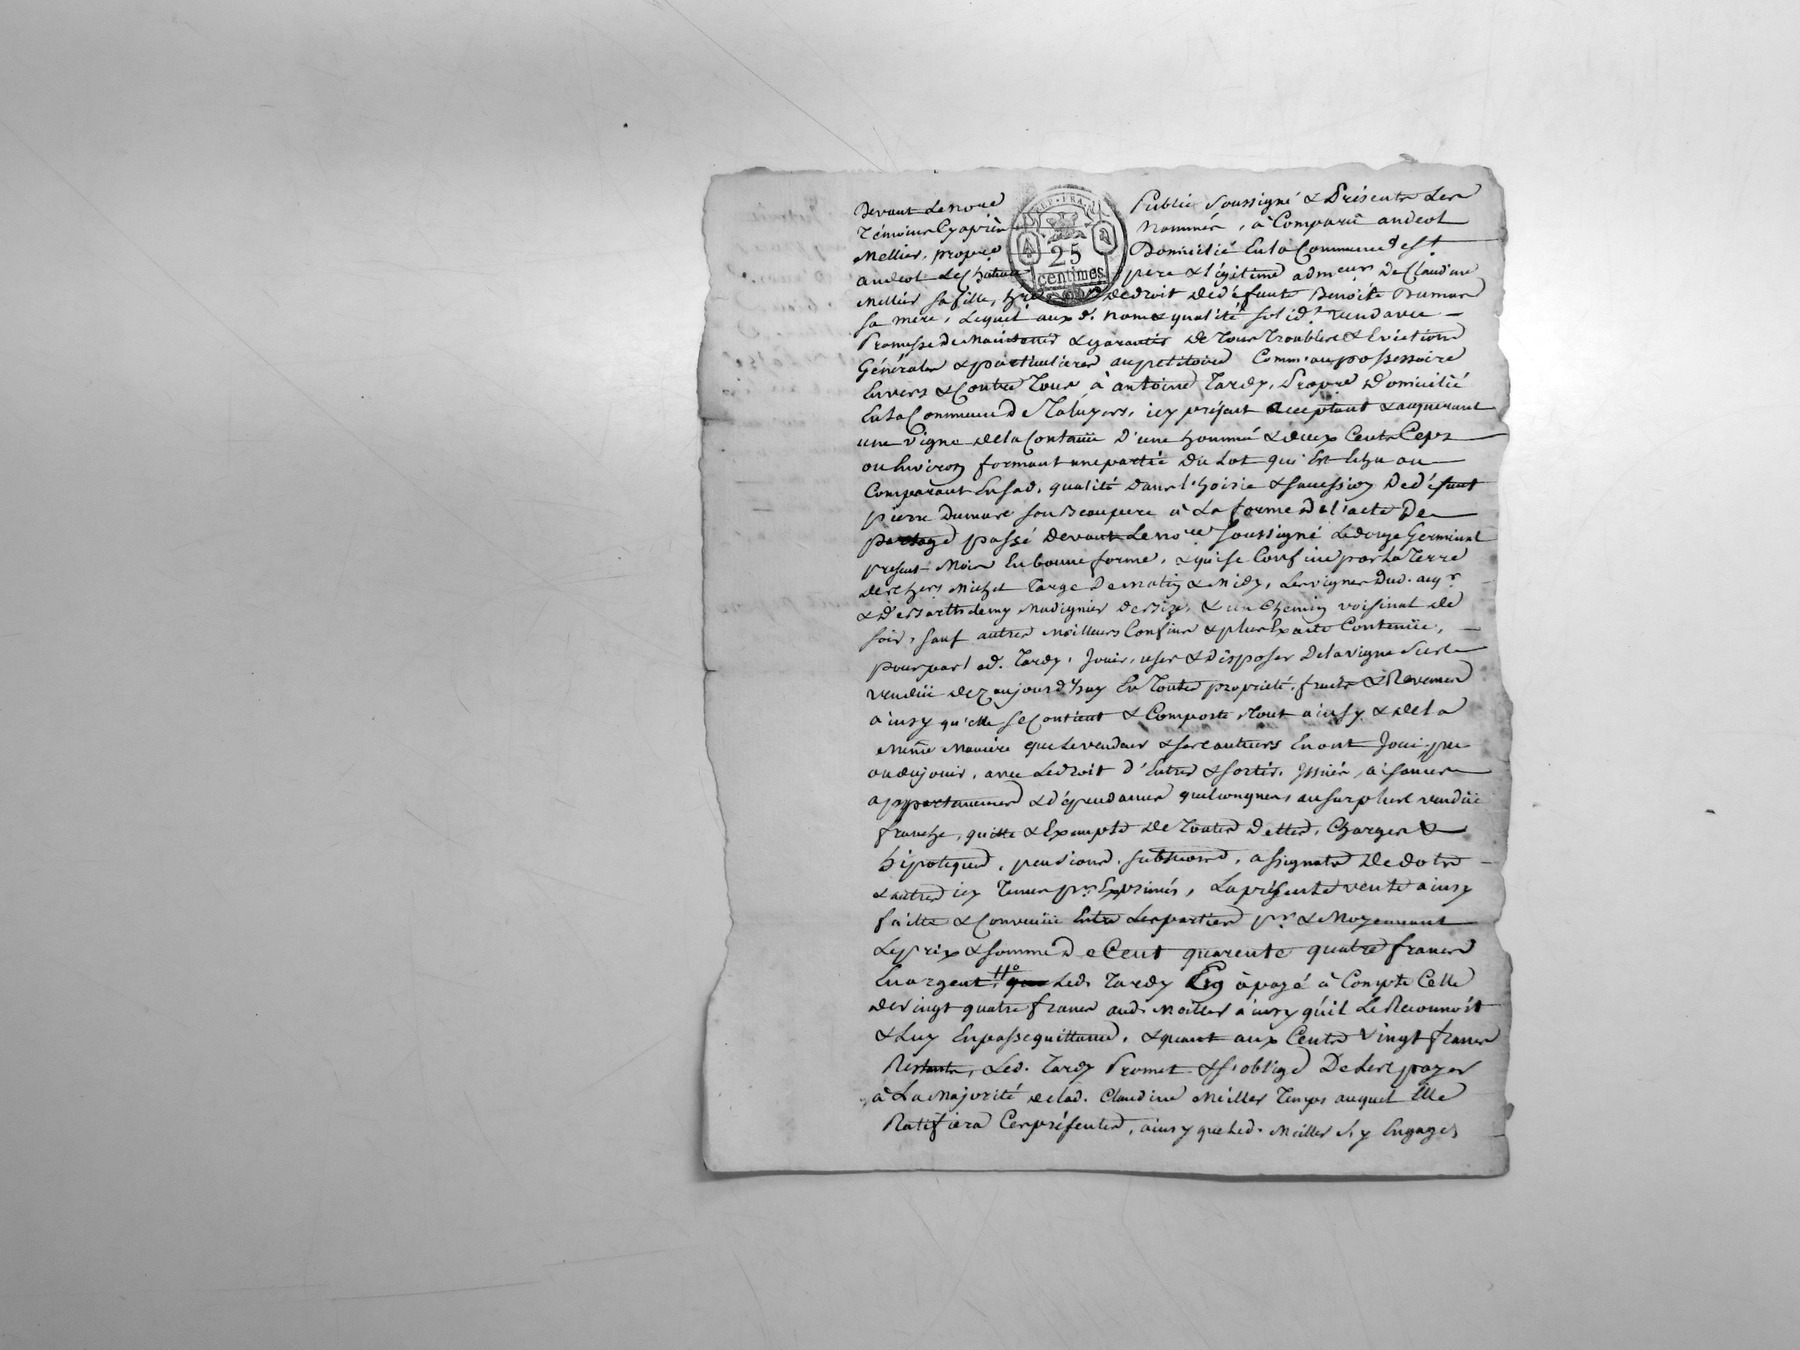 Devant Le no.re Public Soussigné & Présents Les
Témoins Cyaprès Nommés, à Comparu andeol
Mellier, propre Domicilié En la Commune d'est
andeol Le Chateau père & légitime adm.eurs de Claudine
Mellier sa fille, de droit de défunte Benoîte Dumas
sa mère, Lequel aux d. noms & qualités solid.t vend avec
Promesse de Maintenue & garantie de Tous Troubles & Evictions
Générales & particulieres au petitoire Comm'au possessoire
Envers & Contre Tous à antoine Tardy, Propre Domicilié
En la Commune de Taluyers, icy présent acceptant & acquerant
une Vigne de la Contenüe d'une hommée & deux Cents Ceps
ou Environ formant une partie du Lot qui Est Echu au
Comparant En sad. qualité dans l'hoirie & succession de défunt
pierre Dumas son Beaupere à La forme de l'acte De
partage passé devant Le no.re soussigné Le douze Germinal
présent Mois En bonne forme, & qui se Confine par La Terre
de Michel Targe de matin & Midy, Les vignes dud. aeq.r
& de Barthelemy Madignier de Bize, & un Chemin voisinal de
soir, sauf autres Meilleurs Confins & plus Exacte Contenüe,
pour par led. Tardy, Jouir, user & Disposer De la vigne Susd.
vendüe dez aujourd'huy En Toutes propriété, fruits & Revenus
ainsy qu'elle se Contient & Comporte Tout ainsy & de la
même Maniére que Le vendeur & ses auteurs En ont Joui pu
ou du jouir, avec Le droit d'Entrés & sortis, Issües, aisances
appartenances & dépendances quelconques, au surplus vendüe
franche, quitte & Exempte De Toutes Dettes, Charges &
hipoteques, pensions, assignats De dots
& autres icy Tenus p.r Exprimés, La présente vente ainsy
faitte & Convenüe Entre Les parties p.r & Moyennant
Le prix & somme De Cent quarente quatre francs
En argent Led. Tardy En à payé à Compte Celle
de vingt quatre francs aud. Meiller ainsy qu'il Le Reconnoit
& Luy En passe quittance, & quant aux Cents Vingt francs
Restants, Led. Tardy Promet & s'oblige De Les payer
à La Majorité de lad. Claudine Meiller Temps auquel Elle
Ratifiera Ces présentes, ainsy que Led. Meiller s'y Engage,
REP. FRA.
25
centimes